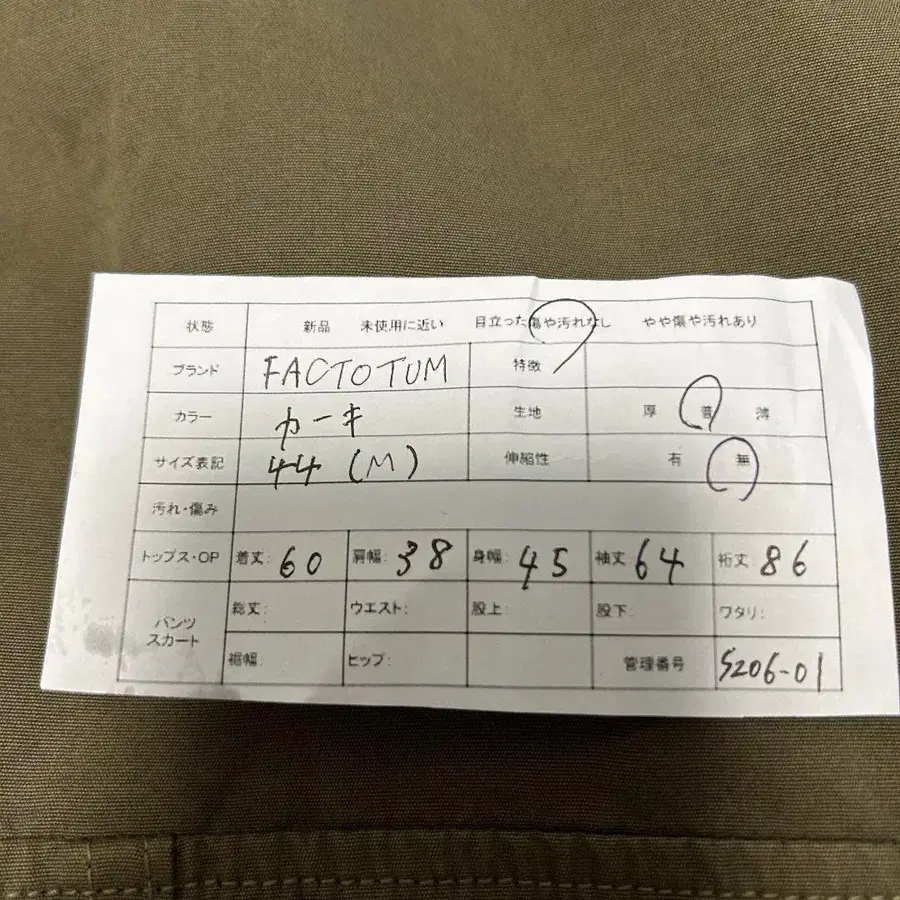 状態 新品 未使用に近い 目立った傷や汚れなし やや傷や汚れあり
ブランド FACTOTUM 特徴
カラー カーキ 生地 厚 普 薄
サイズ表記 44 (M) 伸縮性 有 無
汚れ・傷み
トップス・OP 着丈: 60 肩幅: 38 身幅: 45 袖丈 64 裄丈 86
パンツ スカート 総丈: ウエスト: 股上: 股下: ワタリ:
裾幅: ヒップ: 管理番号 S206-01